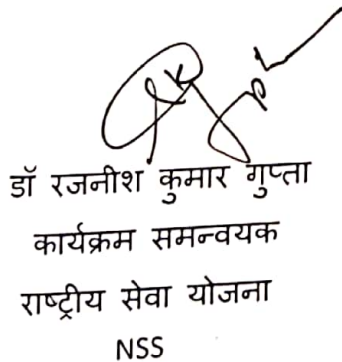 डॉ रजनीश कुमार गुप्ता
कार्यक्रम समन्वयक
राष्ट्रीय सेवा योजना
NSS